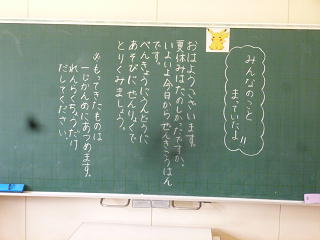 みんなのこと
まっていたよ!!
おはようございます。
夏休みはたのしかったですか。
いよいよ今日からぜんきこうはん
です。
べんきょうにうんどうに
あそびに ぜんりょくで
とりくみましょう。
もってきたものは
一じかんめにあつめます。
れんらくちょうだけ
だしてください。